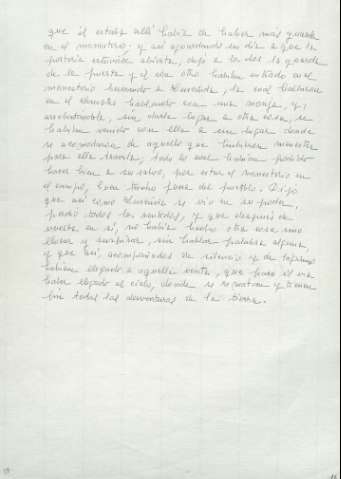 que él estaba allí había de haber más guarda
en el monasterio, y así aguardando un día a que la
portería estuviese abierta, dejó a los dos la guarda
de la puerta y él con otro habían entrado en el
monasterio buscando a Luscinda, la cual hallaron
en el claustro hablando con una monja, y
arrebatándola, sin darle lugar a otra cosa, se
habían venido con ella a un lugar donde
se acomodaron de aquello que hubieron menester
para ella traerla, todo lo cual habían podido
hacer bien a su salvo, por estar el monasterio en
el campo, buen trecho fuera del pueblo. Dijo
que así como Luscinda se vio en su poder,
perdió todos los sentidos, y que después de
vuelta en sí, no había hecho otra cosa sino
llorar y suspirar, sin hablar palabra alguna,
y que así, acompañados de silencio y de lágrimas,
habían llegado a aquella venta, que para él era
haber llegado al cielo, donde se rematan y tienen
fin todas las desventuras de la tierra.